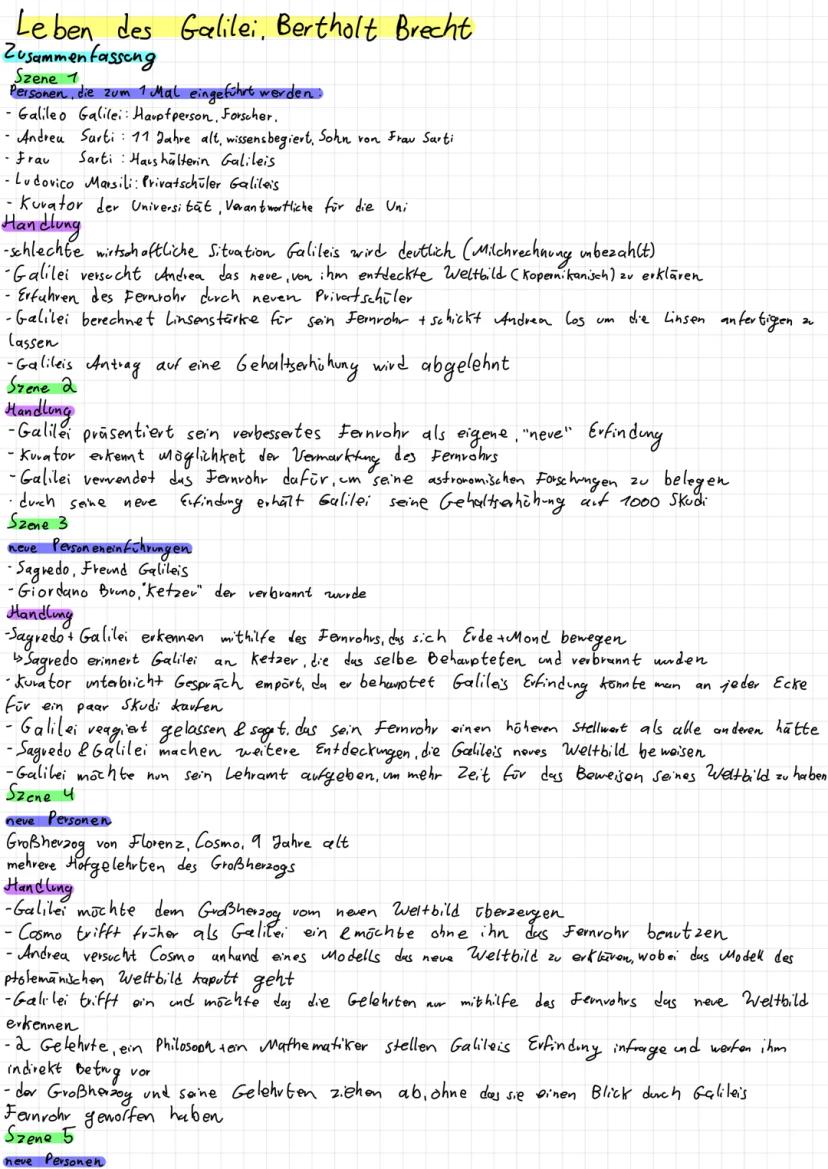 Leben des Galilei, Bertholt Brecht
Zusammenfassung
Szene 1
Personen, die zum 1 Mal eingeführt werden:
- Galileo Galilei: Hauptperson, Forscher,
- Andrea Sarti: 11 Jahre alt, wissensbegiert, Sohn von Frau Sarti
- Frau Sarti: Haushälterin Galileis
- Ludovico Marsili: Privatschüler Galileis
- Kurator der Universität, Verantwortliche für die Uni
Handlung
- schlechte wirtschaftliche Situation Galileis wird deutlich (Milchrechnung unbezahlt)
- Galilei versucht Andrea das neue, von ihm entdeckte Weltbild (Kopernikanisch) zu erklären
- Erfahren des Fernrohr durch neuen Privatschüler
- Galilei berechnet Linsenstärke für sein Fernrohr + schickt Andrea los um die Linsen anfertigen zu
lassen
- Galileis Antrag auf eine Gehaltserhöhung wird abgelehnt
Szene 2
Handlung
- Galilei präsentiert sein verbessertes Fernrohr als eigene, "neue" Erfindung
- Kurator erkennt Möglichkeit der Vermarktung des Fernrohrs
- Galilei verwendet das Fernrohr dafür, um seine astronomischen Forschungen zu belegen
- durch seine neue Erfindung erhält Galilei seine Gehaltserhöhung auf 1000 Skudi
Szene 3
neue Personeneinführungen
- Sagredo, Freund Galileis
- Giordano Bruno, "Ketzer" der verbrannt wurde
Handlung
- Sagredo + Galilei erkennen mithilfe des Fernrohrs, das sich Erde + Mond bewegen
↳ Sagredo erinnert Galilei an Ketzer, die das selbe Behaupteten und verbrannt wurden
- Kurator unterbricht Gespräch empört, da er behauptet Galileis Erfindung könnte man an jeder Ecke
für ein paar Skudi kaufen
- Galilei reagiert gelassen & sagt, das sein Fernrohr einen höheren Stellwert als alle anderen hätte
- Sagredo & Galilei machen weitere Entdeckungen, die Galileis neues Weltbild beweisen
- Galilei möchte nun sein Lehramt aufgeben, um mehr Zeit für das Beweisen seines Weltbild zu haben
Szene 4
neue Personen
Großherzog von Florenz, Cosmo, 9 Jahre alt
mehrere Hofgelehrten des Großherzogs
Handlung
- Galilei möchte dem Großherzog vom neuen Weltbild überzeugen
- Cosmo trifft früher als Galilei ein & möchte ohne ihn das Fernrohr benutzen
- Andrea versucht Cosmo anhand eines Modells das neue Weltbild zu erklären, wobei das Modell des
ptolemänischen Weltbild kaputt geht
- Galilei trifft ein und möchte das die Gelehrten nur mithilfe des Fernrohrs das neue Weltbild
erkennen
- 2 Gelehrte, ein Philosoph + ein Mathematiker stellen Galileis Erfindung infrage und werfen ihm
indirekt Betrug vor
- der Großherzog und seine Gelehrten ziehen ab, ohne das sie einen Blick durch Galileis
Fernrohr geworfen haben
Szene 5
neue Personen